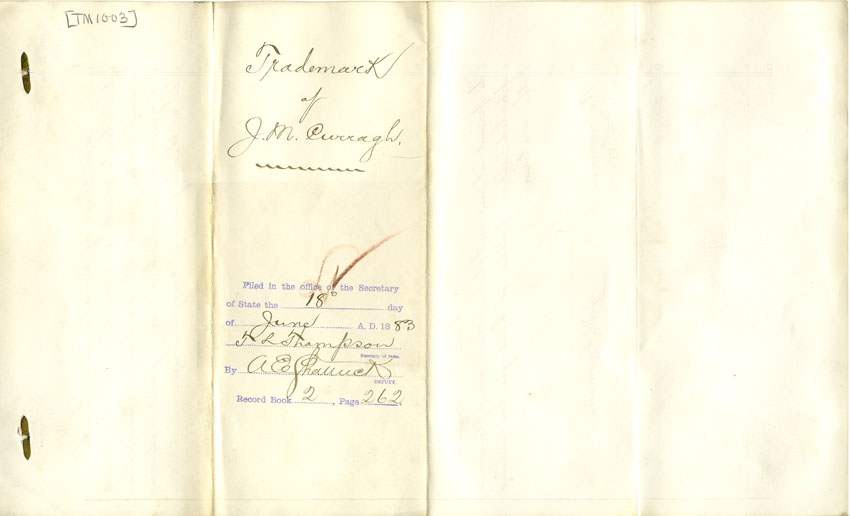 [TM1003]
Trademark
of
J. M. Curragh.
Filed in the office of the Secretary
of State the 18th day
of June A. D. 1883
T L Thompson
Secretary of State.
By A E Shattuck
DEPUTY.
Record Book 2, Page 262.